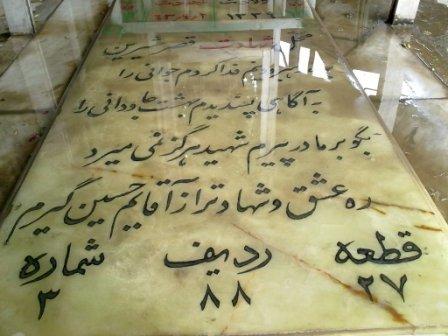 ۱۳۳۹
شهادت قصرشیرین
فدا کردم جوانی را
به آگاهی پسندیدم بهشت جاودانی را
بگو بر مادر پیرم شهید هرگز نمی میرد
ره عشق و شهادت را ز آقایم حسین گیرم
قطعه ردیف شماره
۲۷ ۸۸ ۳